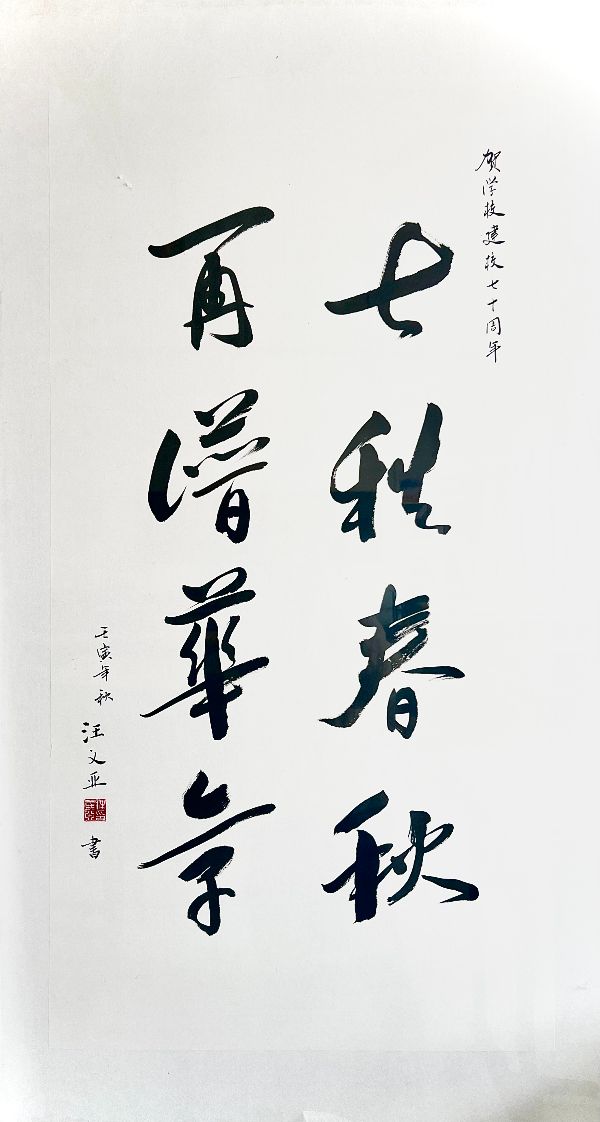 贺学校建校七十周年
七秩春秋
再谱华章
壬寅年秋
汪文亚
书